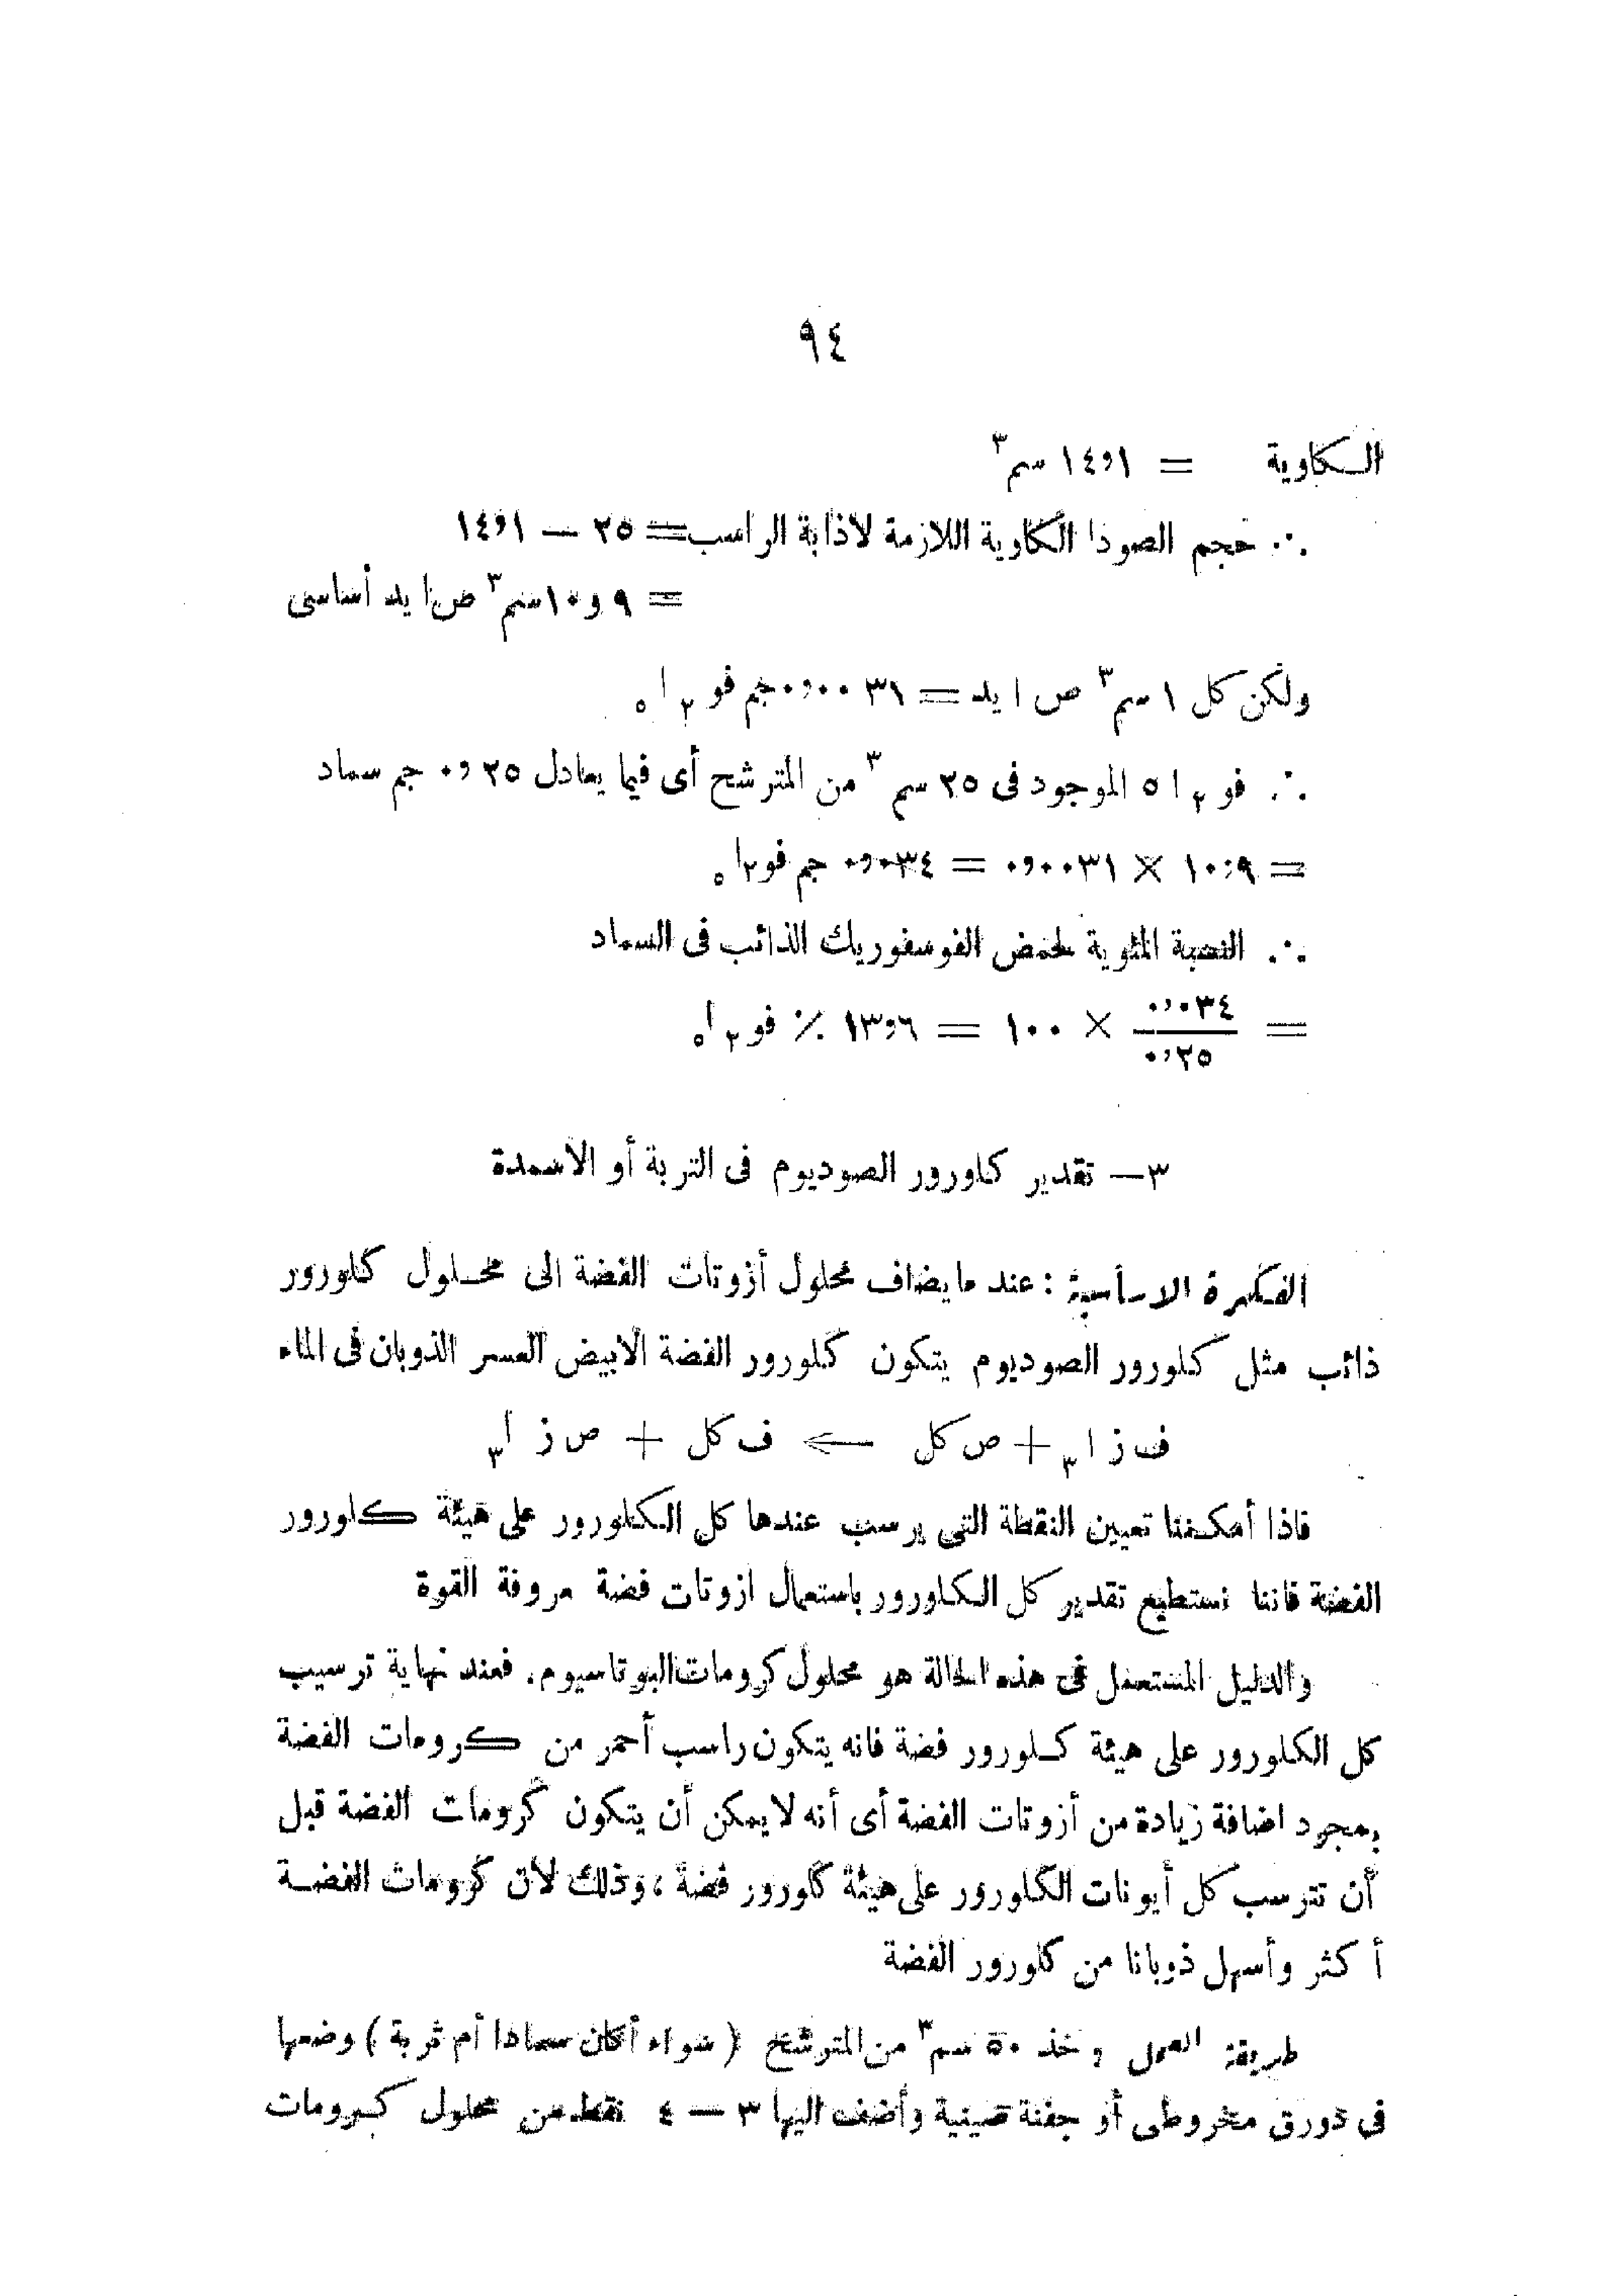 ٩٤
الكاوية = ١٤٫١ سم٣
∴ حجم الصودا الكاوية اللازمة لاذابة الراسب = ٢٥ — ١٤٫١
= ٩ و١٠ سم٣ ص ا يد أساسى
ولكن كل ١ سم٣ ص ا يد = ٠٫٠٠٣١ جم فو٢ ا٥
∴ فو٢ ا ٥ الموجود فى ٢٥ سم٣ من المترشح أى فيما يعادل ٠٫٢٥ جم سماد
= ١٠٫٩ × ٠٫٠٠٣١ = ٠٫٠٣٤ جم فو٢ ا٥
∴ النسبة المئوية لحمض الفوسفوريك الذائب فى السماد
= ٠٫٠٣٤ / ٠٫٢٥ × ١٠٠ = ١٣٫٦ ٪ فو٢ ا٥
٣ — تقدير كلورور الصوديوم فى التربة أو الاسمدة
الفكرة الاساسية : عند ما يضاف محلول أزوتات الفضة الى محلول كلورور
ذائب مثل كلورور الصوديوم يتكون كلورور الفضة الابيض العسر الذوبان فى الماء
ف ز ا٣ + ص كل ← ف كل + ص ز ا٣
فاذا أمكننا تعيين النقطة التى يرسب عندها كل الكلورور على هيئة كلورور
الفضة فاننا نستطيع تقدير كل الكلورور باستعمال ازوتات فضة مروفة القوة
والدليل المستعمل فى هذه الحالة هو محلول كرومات البوتاسيوم. فعند نهاية ترسيب
كل الكلورور على هيئة كلورور فضة فانه يتكون راسب أحمر من كرومات الفضة
بمجرد اضافة زيادة من أزوتات الفضة أى أنه لا يمكن أن يتكون كرومات الفضة قبل
أن تترسب كل أيونات الكلورور على هيئة كلورور فضة ، وذلك لأن كرومات الفضة
أكثر وأسهل ذوبانا من كلورور الفضة
طريقة العمل : خذ ٥٠ سم٣ من المترشح ( سواء أكان سمادا أم تربة ) وضعها
فى دورق مخروطى أو جفنة صينية وأضف اليها ٣ — ٤ نقط من محلول كرومات